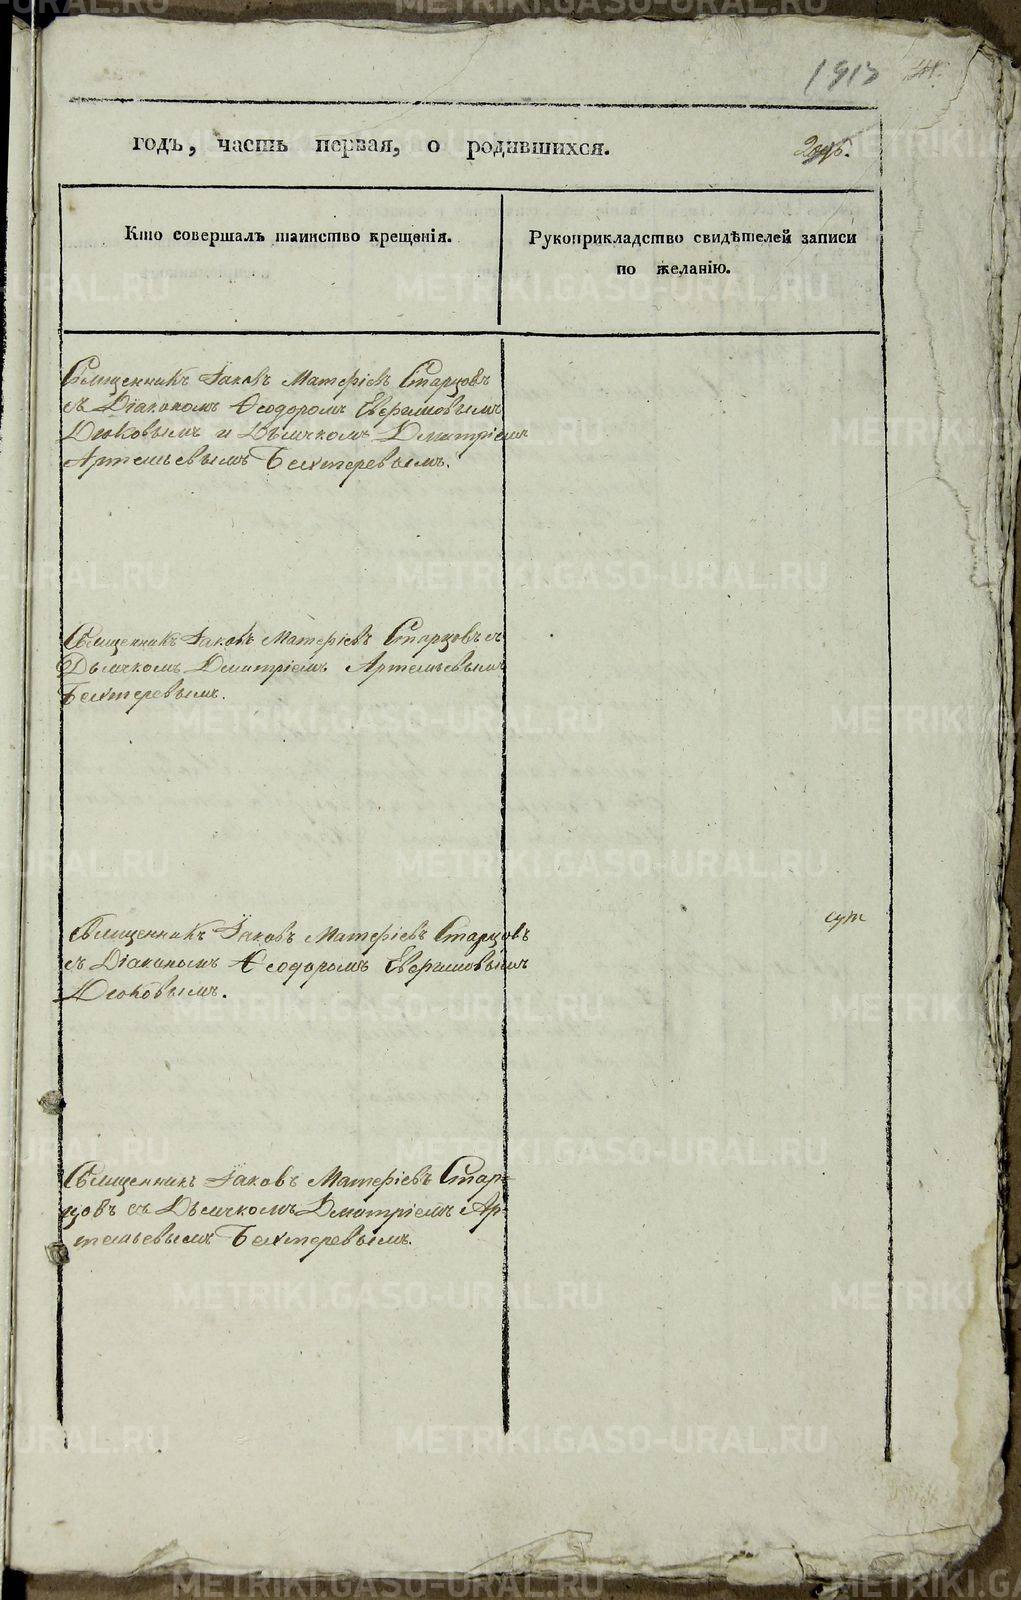 1913
годъ, часть первая, о родившихся.
Кто совершалъ таинство крещенія.
Рукоприкладство свидѣтелей записи
по желанію.
Священникъ Іаковъ Матѳіевъ Старцовъ
съ Діакономъ Ѳеодоромъ
Дюковымъ и Дьячкомъ Дмитріемъ
Артемьевымъ Бехтеревымъ.
Священникъ Іаковъ Матѳіевъ Старцовъ съ
Дьячкомъ Дмитріемъ Артемьевымъ
Бехтеревымъ.
Священникъ Іаковъ Матѳіевъ Старцовъ
съ Діакономъ Ѳеодоромъ
Дюковымъ.
Священникъ Іаковъ Матѳіевъ Стар-
цовъ съ Дьячкомъ Дмитріемъ Ар-
темьевымъ Бехтеревымъ.
METRIKI.GASO-URAL.RU